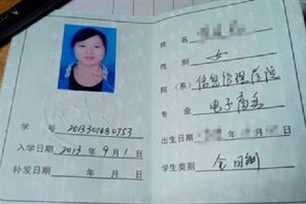 姓名
性别 女
院(系) 信息管理学院
专业 电子商务
出生日期 年 月 日
学生类别 全日制
学号 2013301680753
入学日期 2013年9月1日
补发日期 年 月 日